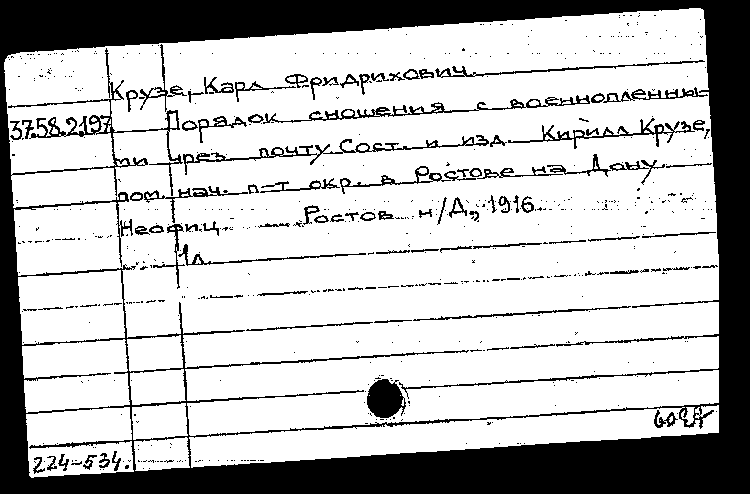 Крузе, Карл Фридрихович.
37.58.2.197 Порядок сношения с военнопленны-
ми чрез почту Сост. и изд. Кирилл Крузе,
пом. нач. п-т окр. в Ростове на Дону.
Неофиц. Ростов н/Д., 1916.
1л.
224-534.